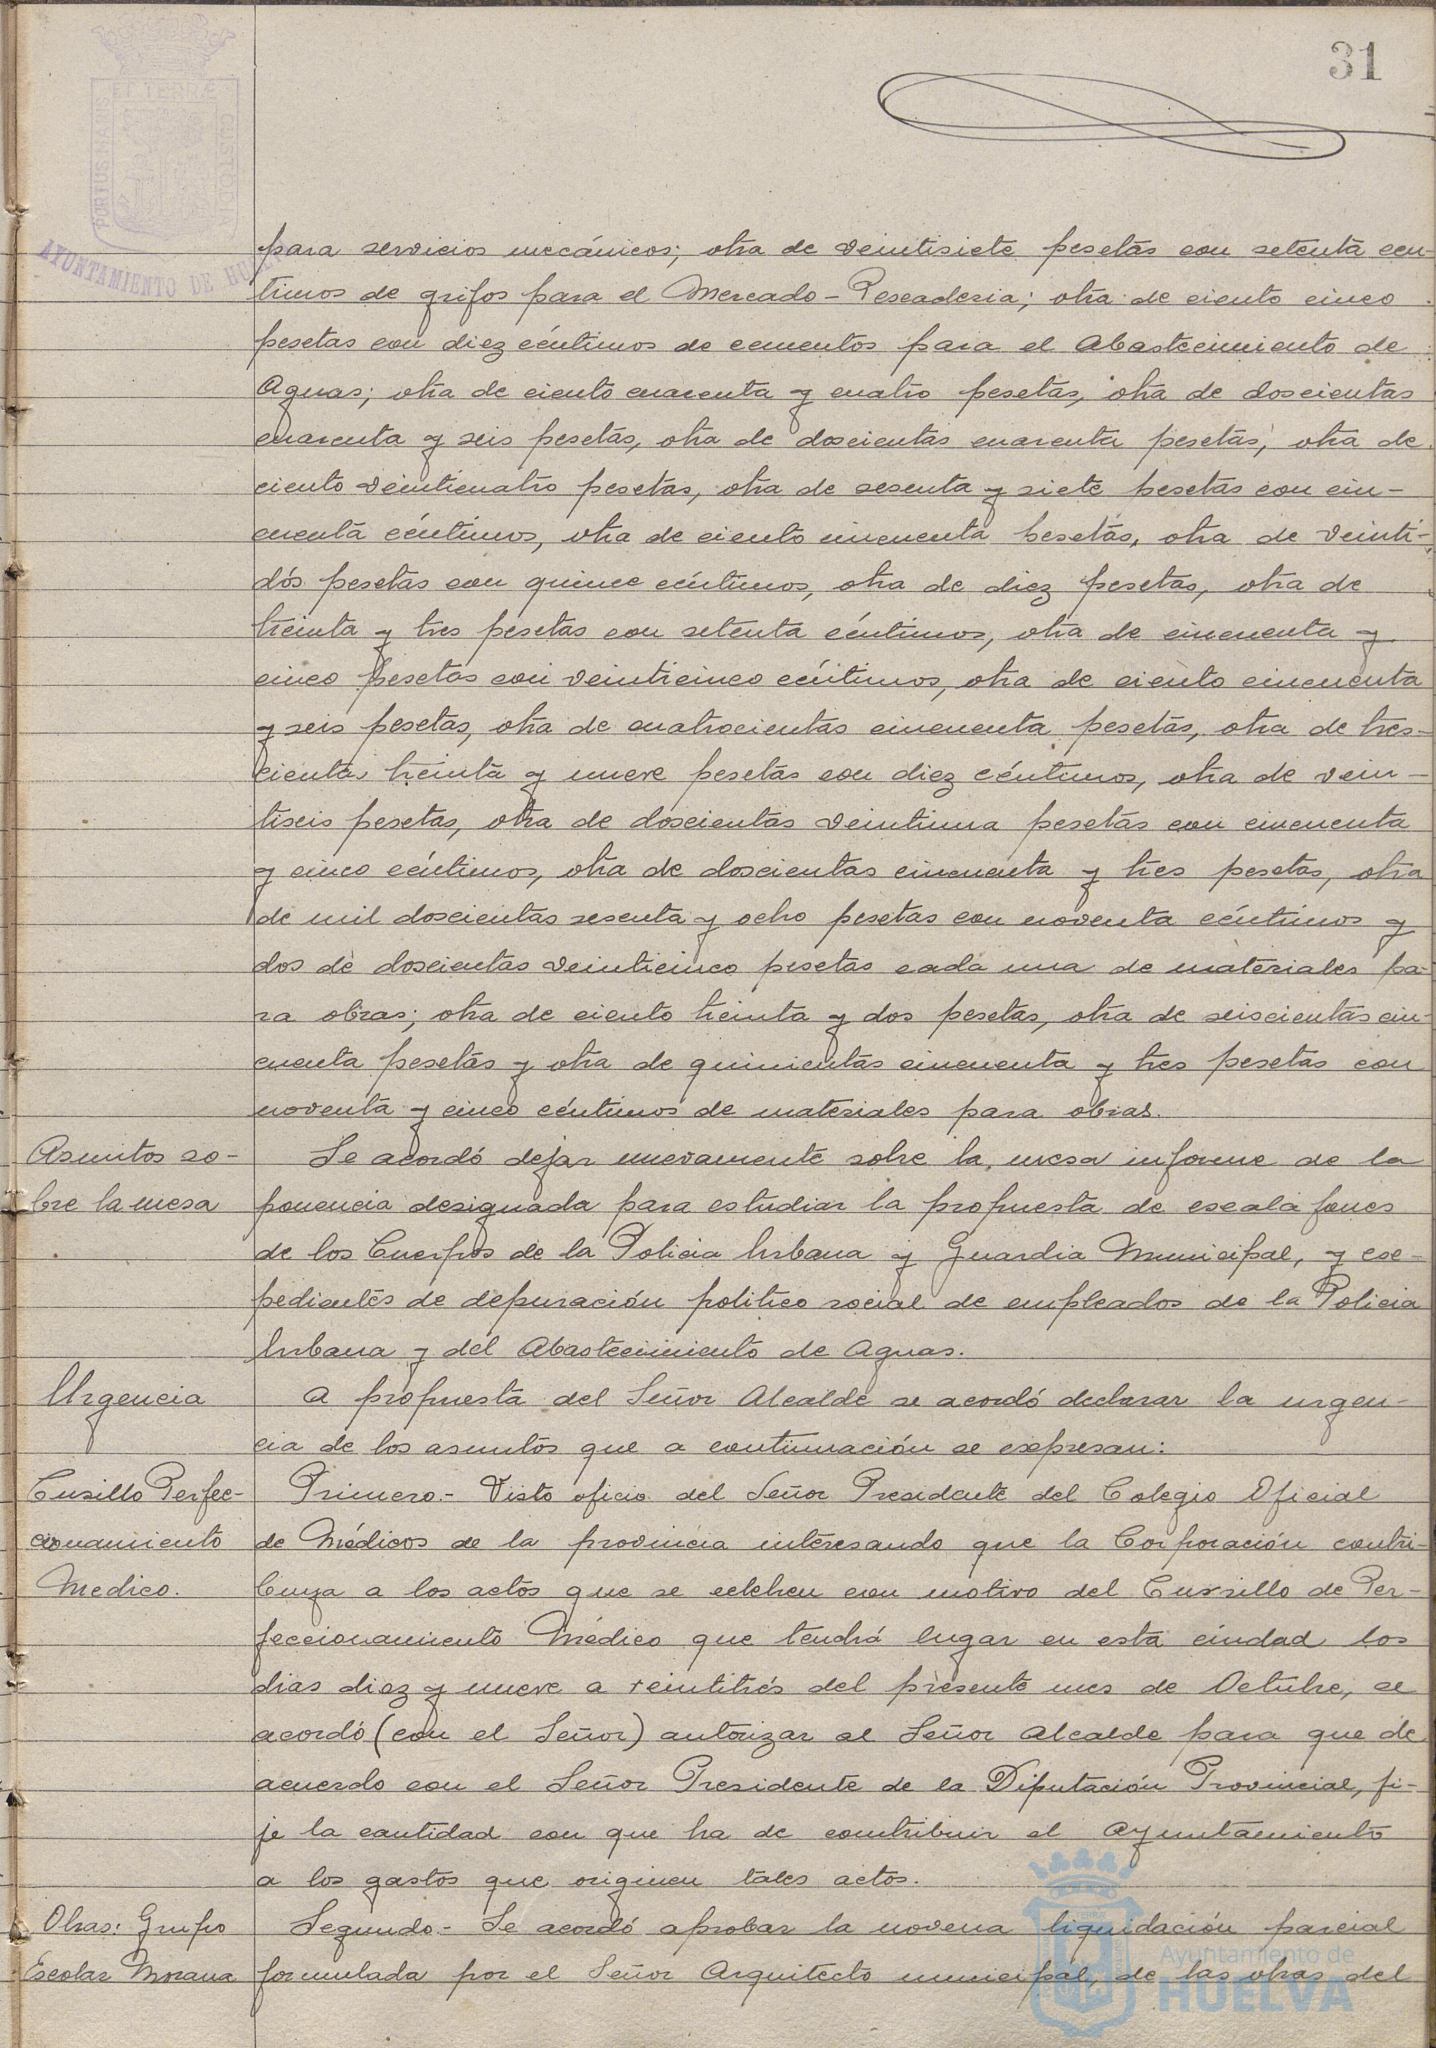 31
PORTUS MARIS ET TERRÆ CUSTODIA
AYUNTAMIENTO DE HU
para servicios mecánicos; otra de veintisiete pesetas con setenta cén-
timos de grifos para el Mercado-Pescaderia; otra de ciento cinco
pesetas con diez céntimos de cementos para el Abastecimiento de
Aguas; otra de ciento cuarenta y cuatro pesetas, otra de doscientas
cuarenta y seis pesetas, otra de doscientas cuarenta pesetas, otra de
ciento veinticuatro pesetas, otra de sesenta y siete pesetas con cin-
cuenta céntimos, otra de ciento cincuenta pesetas, otra de veinti-
dós pesetas con quince céntimos, otra de diez pesetas, otra de
treinta y tres pesetas con setenta céntimos, otra de cincuenta y
cinco pesetas con veinticinco céntimos, otra de ciento cincuenta
y seis pesetas, otra de cuatrocientas cincuenta pesetas, otra de tres-
cientas treinta y nueve pesetas con diez céntimos, otra de vein-
tiseis pesetas, otra de doscientas veintiuna pesetas con cincuenta
y cinco céntimos, otra de doscientas cincuenta y tres pesetas, otra
de mil doscientas sesenta y ocho pesetas con noventa céntimos y
dos de doscientas veinticinco pesetas cada una de materiales pa-
ra obras; otra de ciento treinta y dos pesetas, otra de seiscientas cin-
cuenta pesetas y otra de quinientas cincuenta y tres pesetas con
noventa y cinco céntimos de materiales para obras.
Asuntos so-
bre la mesa
Se acordó dejar nuevamente sobre la mesa informe de la
ponencia designada para estudiar la propuesta de escalafones
de los Cuerpos de la Policia Urbana y Guardia Municipal, y exe-
pedientes de depuración politico social de empleados de la Policia
Urbana y del Abastecimiento de Aguas.
Urgencia
A propuesta del Señor Alcalde se acordó declarar la urgen-
cia de los asuntos que a continuación se expresan:
Cursillo Perfec-
cionamiento
Medico.
Primero.- Visto oficio del Señor Presidente del Colegio Oficial
de Médicos de la provincia interesando que la Corporación contri-
buya a los actos que se celebren con motivo del Cursillo de Per-
feccionamiento Médico que tendrá lugar en esta ciudad los
dias diez y nueve a veintitrés del presente mes de Octubre, se
acordó (con el Señor) autorizar al Señor Alcalde para que de
acuerdo con el Señor Presidente de la Diputación Provincial, fi-
je la cantidad con que ha de contribuir el Ayuntamiento
a los gastos que originen tales actos.
Obras: Grupo
Escolar Morana
Segundo.- Se acordó aprobar la novena liquidación parcial
formulada por el Señor Arquitecto municipal, de las obras del
Ayuntamiento de
HUELVA